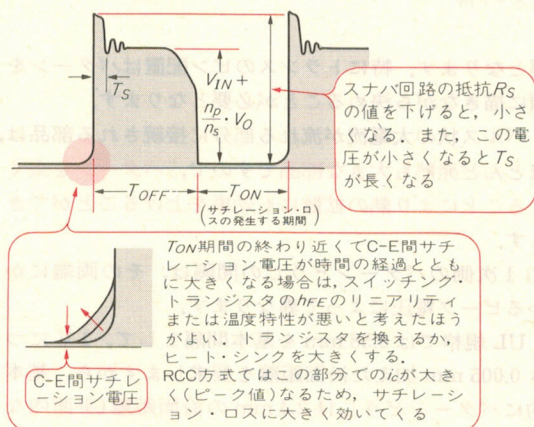 T_S
V_IN +
n_p/n_s · V_O
T_OFF
T_ON
(サチレーション・ロ
スの発生する期間)
スナバ回路の抵抗R_S
の値を下げると，小さ
くなる．また，この電
圧が小さくなるとT_S
が長くなる
T_ON期間の終わり近くでC-E間サチ
レーション電圧が時間の経過ととも
に大きくなる場合は，スイッチング・
トランジスタのh_FEのリニアリティ
または温度特性が悪いと考えたほう
がよい．トランジスタを換えるか，
ヒート・シンクを大きくする．
RCC方式ではこの部分でのi_cが大き
く(ピーク値)なるため，サチレーシ
ョン・ロスに大きく効いてくる
C-E間サチレ
ーション電圧